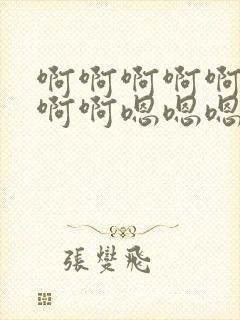 啊啊啊啊啊
啊啊嗯嗯嗯
張燮飛